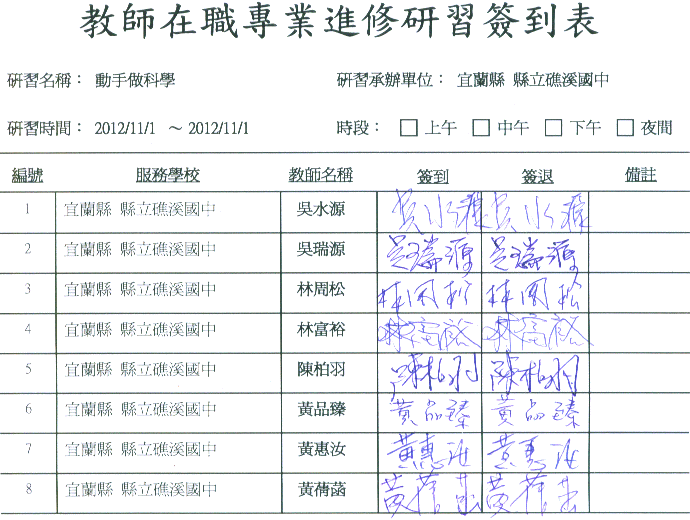 教師在職專業進修研習簽到表
研習名稱： 動手做科學 研習承辦單位： 宜蘭縣 縣立礁溪國中
研習時間： 2012/11/1 ～ 2012/11/1 時段： □ 上午 □ 中午 □ 下午 □ 夜間
編號 服務學校 教師名稱 簽到 簽退 備註
1 宜蘭縣 縣立礁溪國中 吳水源 吳水源 吳水源
2 宜蘭縣 縣立礁溪國中 吳瑞源 吳瑞源 吳瑞源
3 宜蘭縣 縣立礁溪國中 林周松 林周松 林周松
4 宜蘭縣 縣立礁溪國中 林富裕 林富裕 林富裕
5 宜蘭縣 縣立礁溪國中 陳柏羽 陳柏羽 陳柏羽
6 宜蘭縣 縣立礁溪國中 黃品臻 黃品臻 黃品臻
7 宜蘭縣 縣立礁溪國中 黃惠汝 黃惠汝 黃惠汝
8 宜蘭縣 縣立礁溪國中 黃蒨菡 黃蒨菡 黃蒨菡